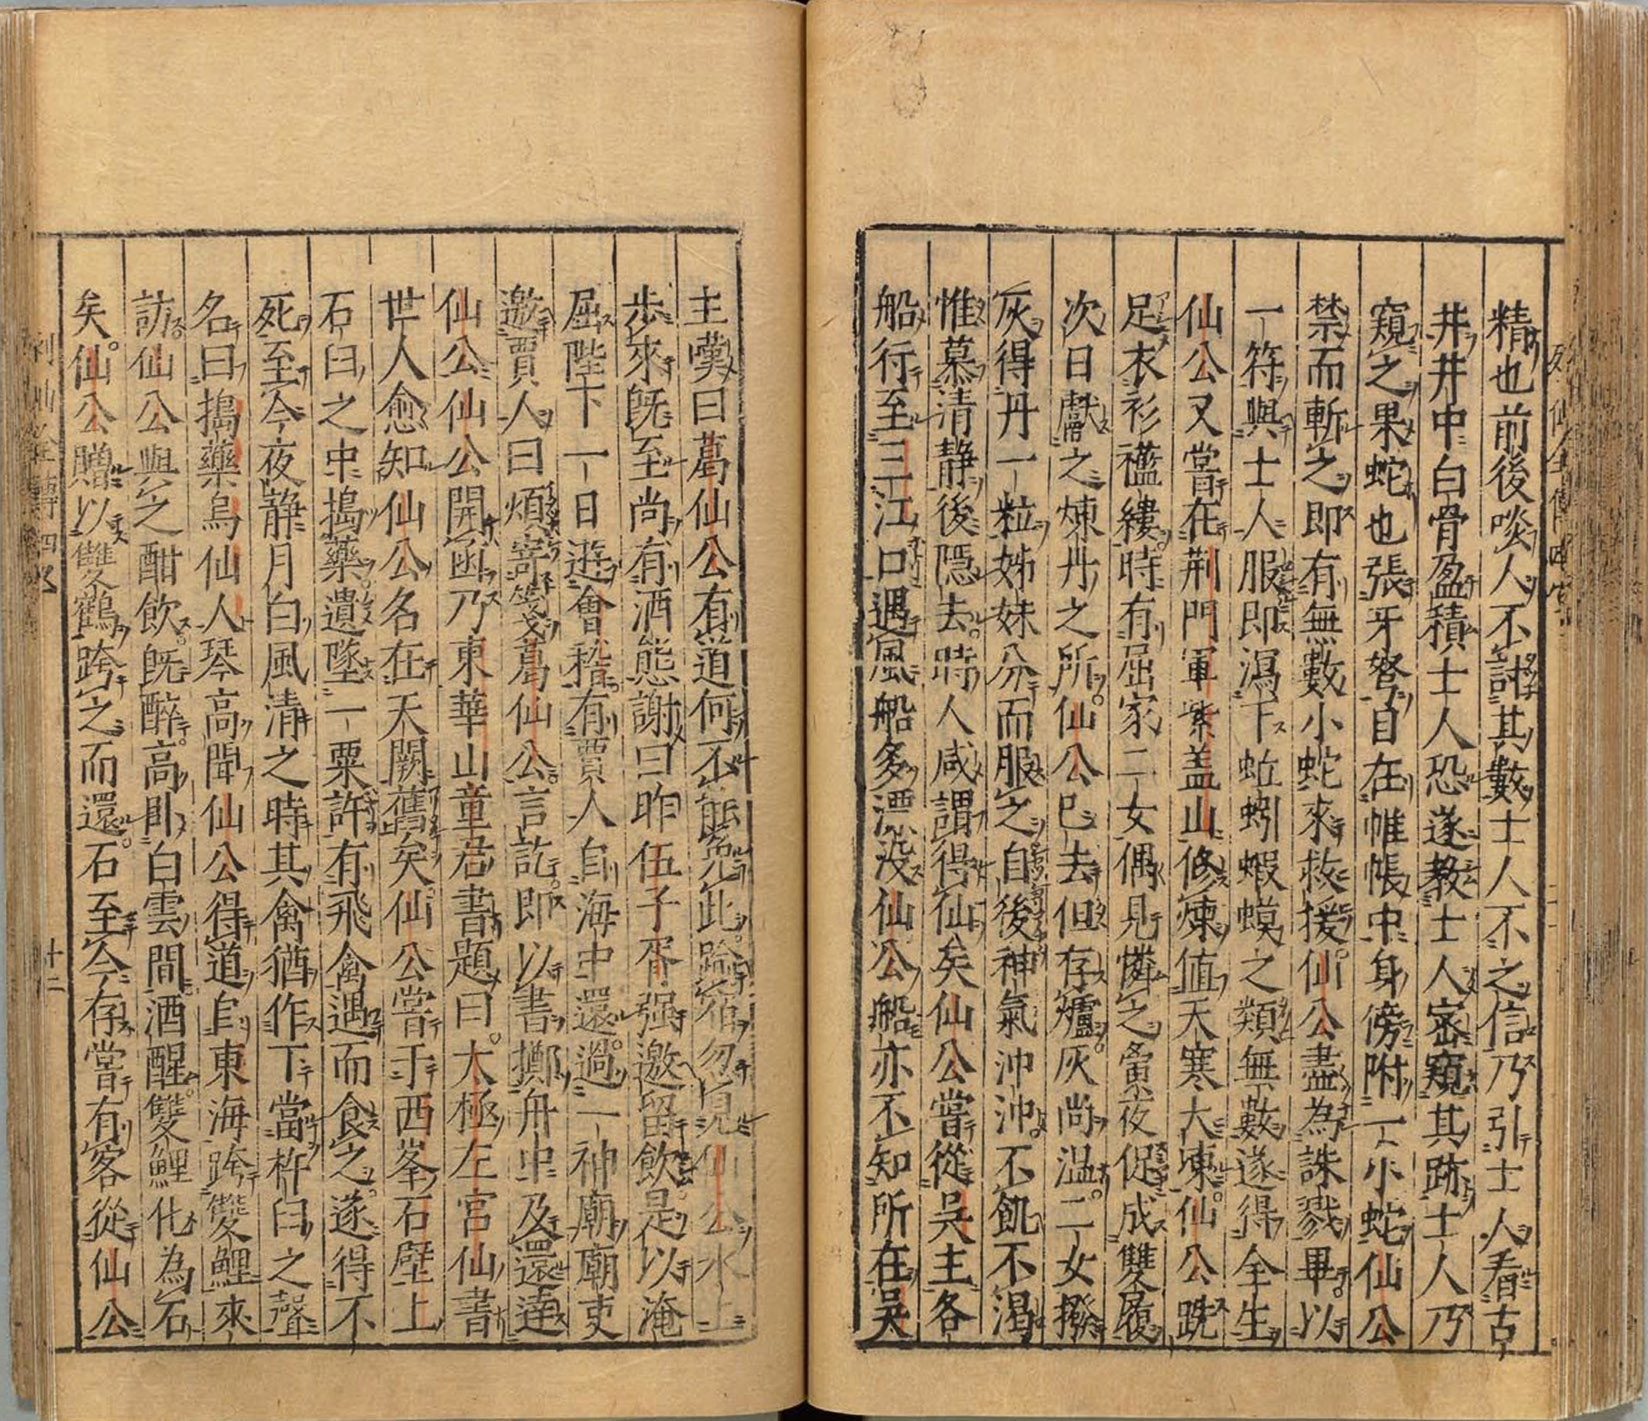 精也前後啖人不計其數士人不之信乃引士人看古
井井中白骨盈積士人恐遂教士人密窺其跡士人乃
窺之果蛇也張牙弩目在帷帳中身傍附一小蛇仙公
禁而斬之即有無數小蛇來救援仙公盡為誅戮畢以
一符與士人服即瀉下蚯蚓蝦蟆之類無數遂得全生
仙公又當在荊門軍紫盖山修煉値天寒大凍仙公跣
足衣衫襤縷時有屈家二女偶見憐之夤夜促成雙履
次日獻之煉丹之所仙公已去但存爐灰尚温二女撥
灰得丹一粒姊妹分而服之自後神氣沖沖不飢不渴
惟慕清静後隱去時人咸謂得仙矣仙公嘗從吳主各
船行至三江口遇風船多漂沒仙公船亦不知所在吳
主嘆曰葛仙公有道何不能免此踰宿忽見仙公水上
歩來既至尚有酒態謝曰昨伍子胥强邀留飲是以淹
屈陛下一日遊會稽有賈人自海中還過一神廟廟吏
邀賈人曰煩寄箋葛仙公言訖即以書擲舟中及還達
仙公仙公開函乃東華山童君書題曰太極左宮仙書
世人愈知仙公名在天闕舊矣仙公嘗于西峯石壁上
石臼之中搗藥遺墜一粟許有飛禽遇而食之遂得不
死至今夜静月白風清之時其禽猶作下當杵臼之聲
名曰搗藥鳥仙人琴高聞仙公得道自東海跨雙鯉來
訪仙公與之酣飲既醉高卧白雲間酒醒雙鯉化為石
矣仙公贈以雙鶴跨之而還石至今存嘗有客從仙公
十二